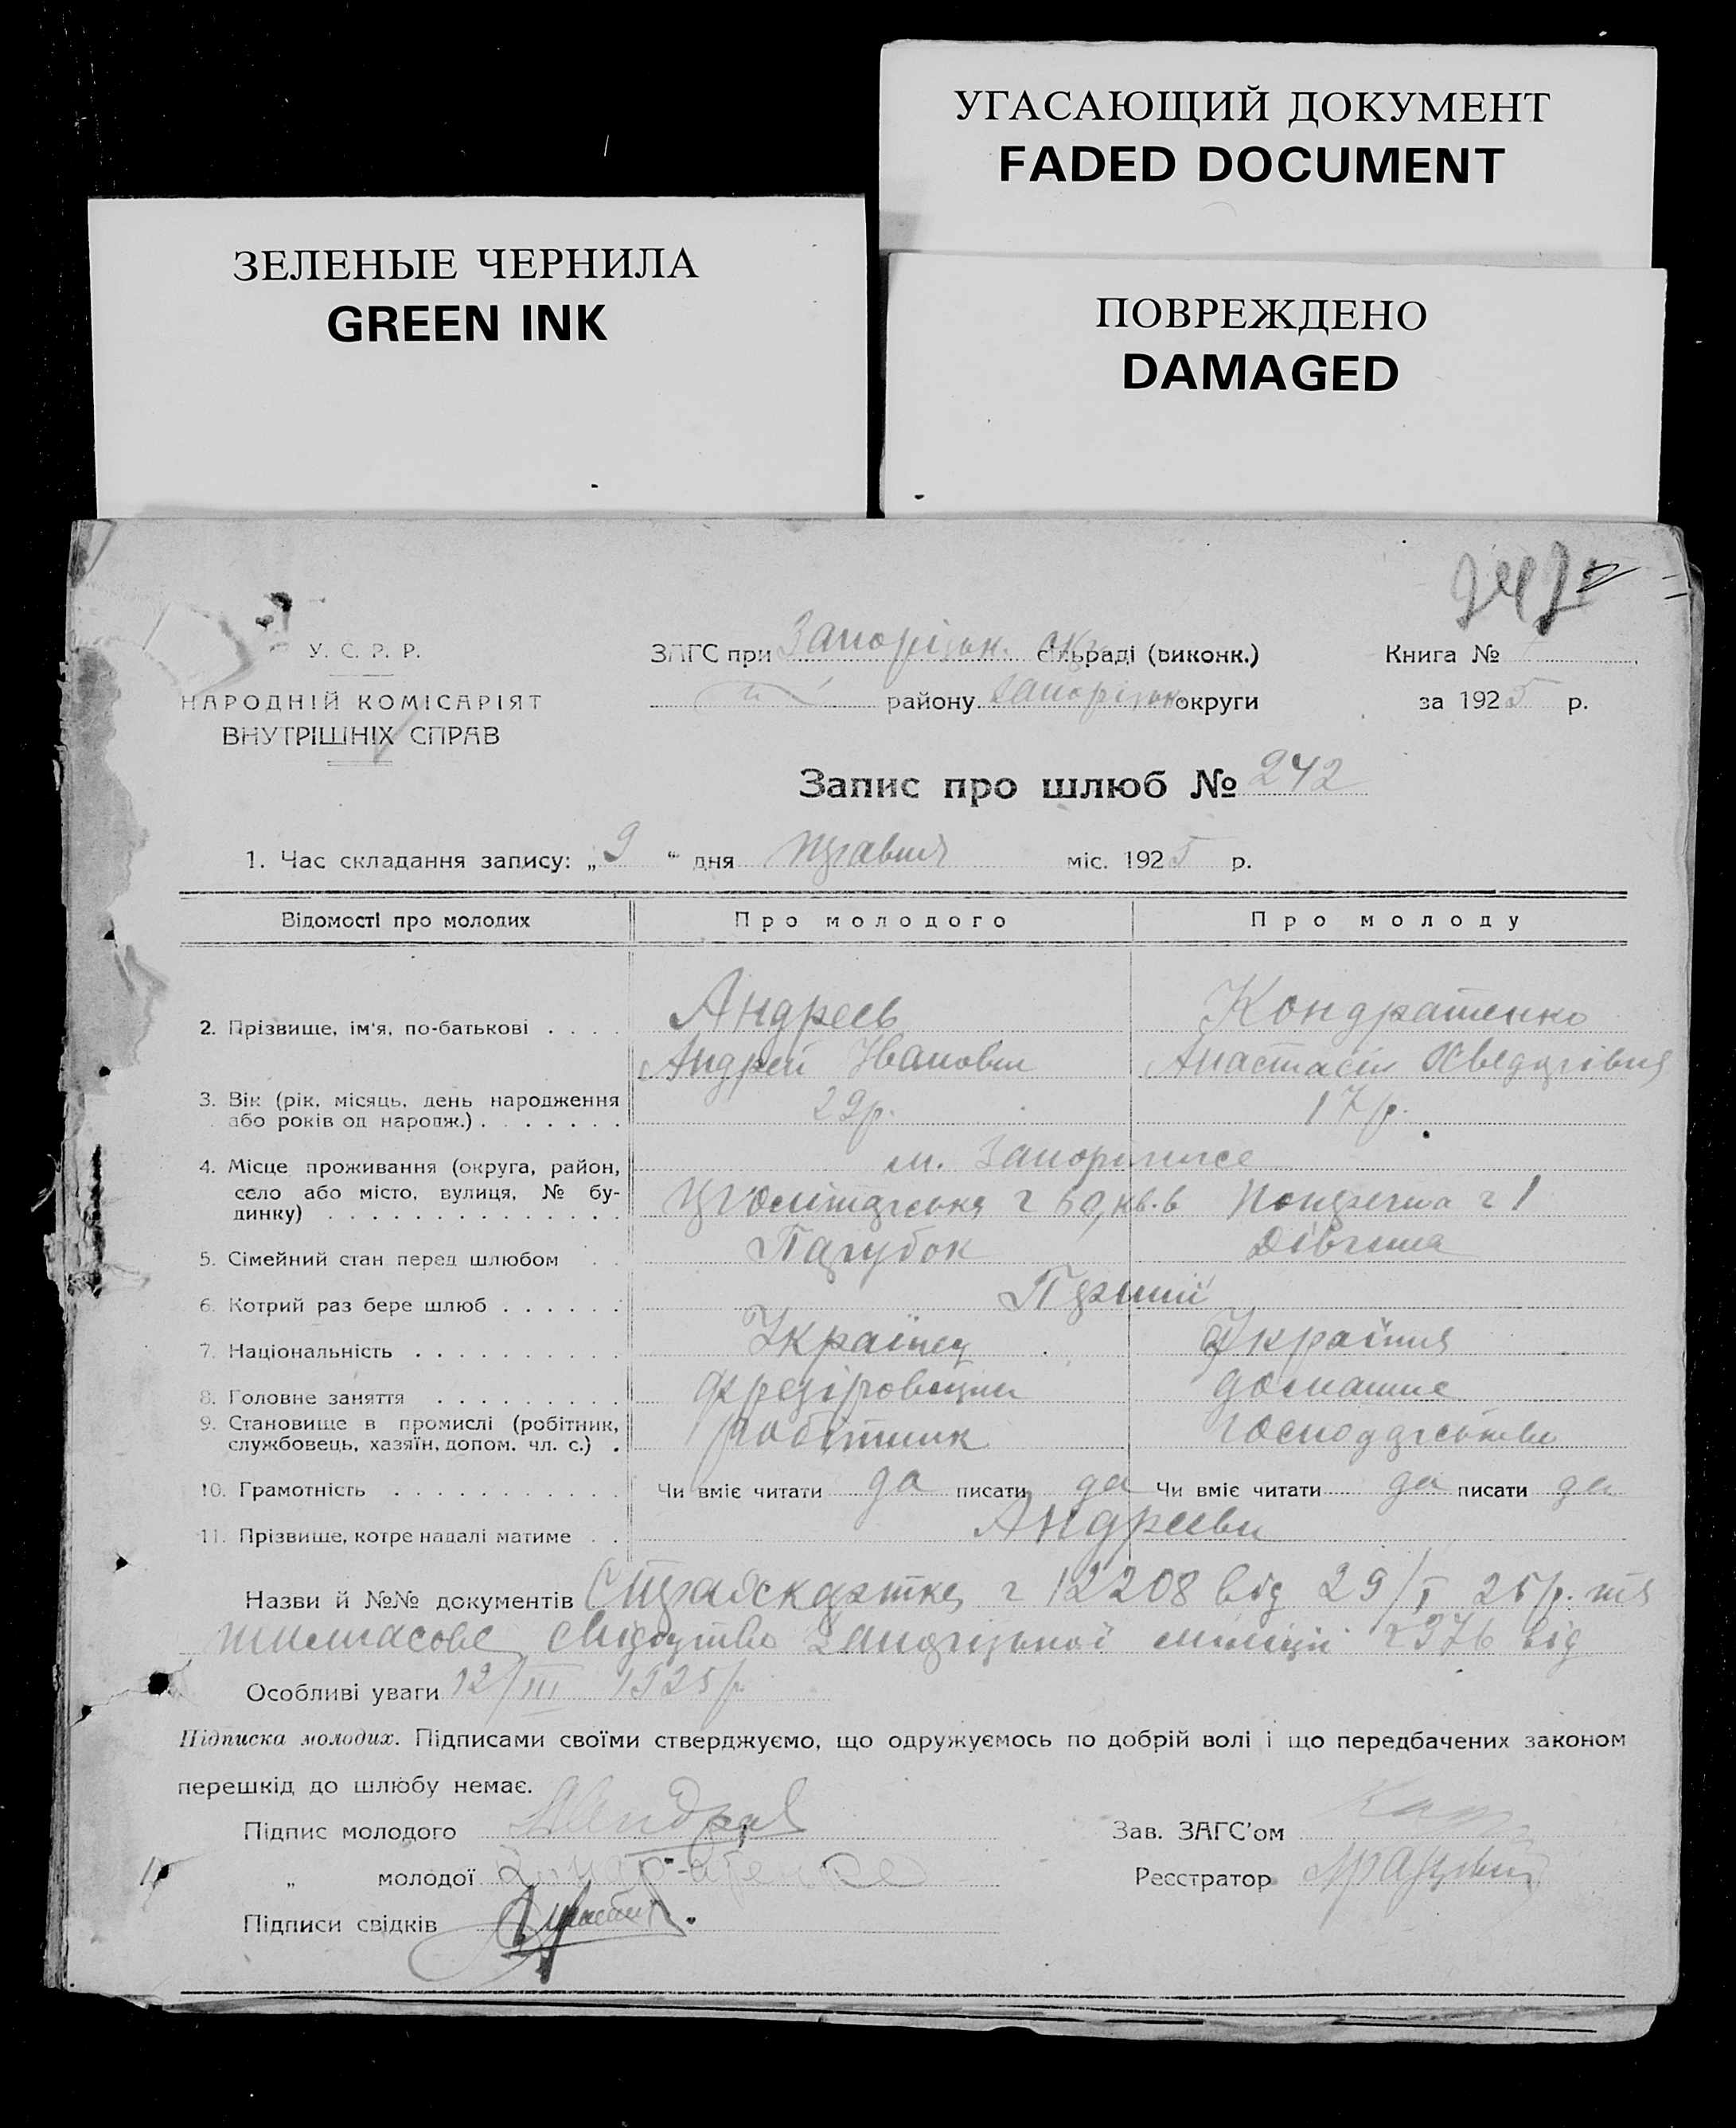 УГАСАЮЩИЙ ДОКУМЕНТ
FADED DOCUMENT
ЗЕЛЕНЫЕ ЧЕРНИЛА
GREEN INK
ПОВРЕЖДЕНО
DAMAGED
У. С. Р. Р.
НАРОДНІЙ КОМІСАРІЯТ
ВНУТРІШНІХ СПРАВ
ЗАГС при Запорізьк. сільраді (виконк.)
району Запорізьк. округи
Книга №
за 1925 р.
Запис про шлюб № 242
1. Час складання запису: „9“ дня травня міс. 1925 р.
Відомості про молодих Про молодого Про молоду
2. Прізвище, ім'я, по-батькові . . . . Андреєв Кондратенко
Андрей Іванович Анастасія
3. Вік (рік, місяць, день народження або років од народж.) . . . . . . . 29р. 17р.
4. Місце проживання (округа, район, село або місто, вулиця, № будинку) . . . . . . . . . . . . . . м. Запоріжже
5. Сімейний стан перед шлюбом . . Парубок Дівчина
6. Котрий раз бере шлюб . . . . . . Перший
7. Національність . . . . . . . . . . Українец Україн
8. Головне заняття . . . . . . . . . домашнє
9. Становище в промислі (робітник, службовець, хазяїн, допом. чл. с.) . робітник господарство
10. Грамотність . . . . . . . . . . . Чи вміє читати да писати да Чи вміє читати да писати да
11. Прізвище, котре надалі матиме . . Андреєви
Назви й №№ документів Страхкартка ч 12208 від 29/I 25р. та
тимчасове свідоцтво Запорізької міліції ч 376 від
Особливі уваги 12/III 1925р.
Підписка молодих. Підписами своїми стверджуємо, що одружуємось по добрій волі і що передбачених законом
перешкід до шлюбу немає.
Підпис молодого
„ молодої
Підписи свідків
Зав. ЗАГС'ом
Реєстратор